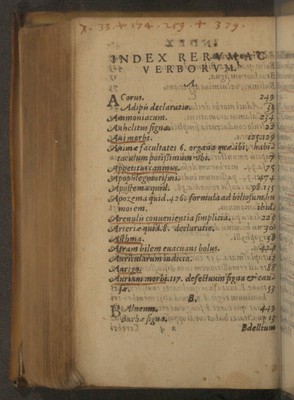 INDEX RERVM AC
VERBORVM.
A Corus. 249
Adipis declaratio. 32
Ammoniacum. 234
Anhelitus signa. 22
Ani morbi. 125.129
Animæ facultates 6. organa quæ ibi, habi-
taculum potissimum ibi. 7
Appetitus caninus. 75
474
Apostema quid. 98.135
Apozema quid. 426 formula ad biliosum hu
morem. ibid.
conuenientia simplicia. 223
Arteriæ quid. 8. declaratio. 30
Asthma. 58
Atram bilem euacuans bolus. 424
Auricularum iudicia. 17
88
Aurium morbi. 117. defectuum signa et cau-
sæ. 53
B.
B Alneum. 449
Barbæ signa. 17
a 4 Bdellium